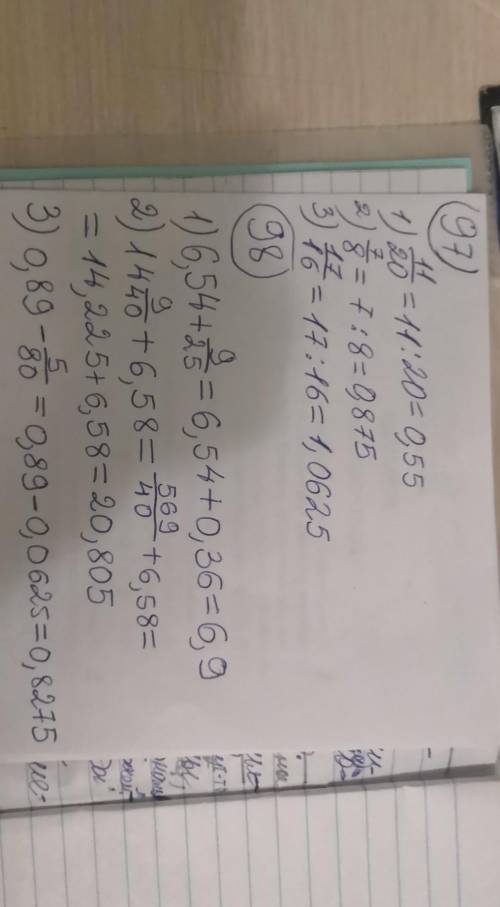 97)
1) 11/20 = 11:20 = 0,55
2) 7/8 = 7:8 = 0,875
3) 17/16 = 17:16 = 1,0625
98)
1) 6,54 + 9/25 = 6,54 + 0,36 = 6,9
2) 14 9/40 + 6,58 = 569/40 + 6,58 =
= 14,225 + 6,58 = 20,805
3) 0,89 - 5/80 = 0,89 - 0,0625 = 0,8275